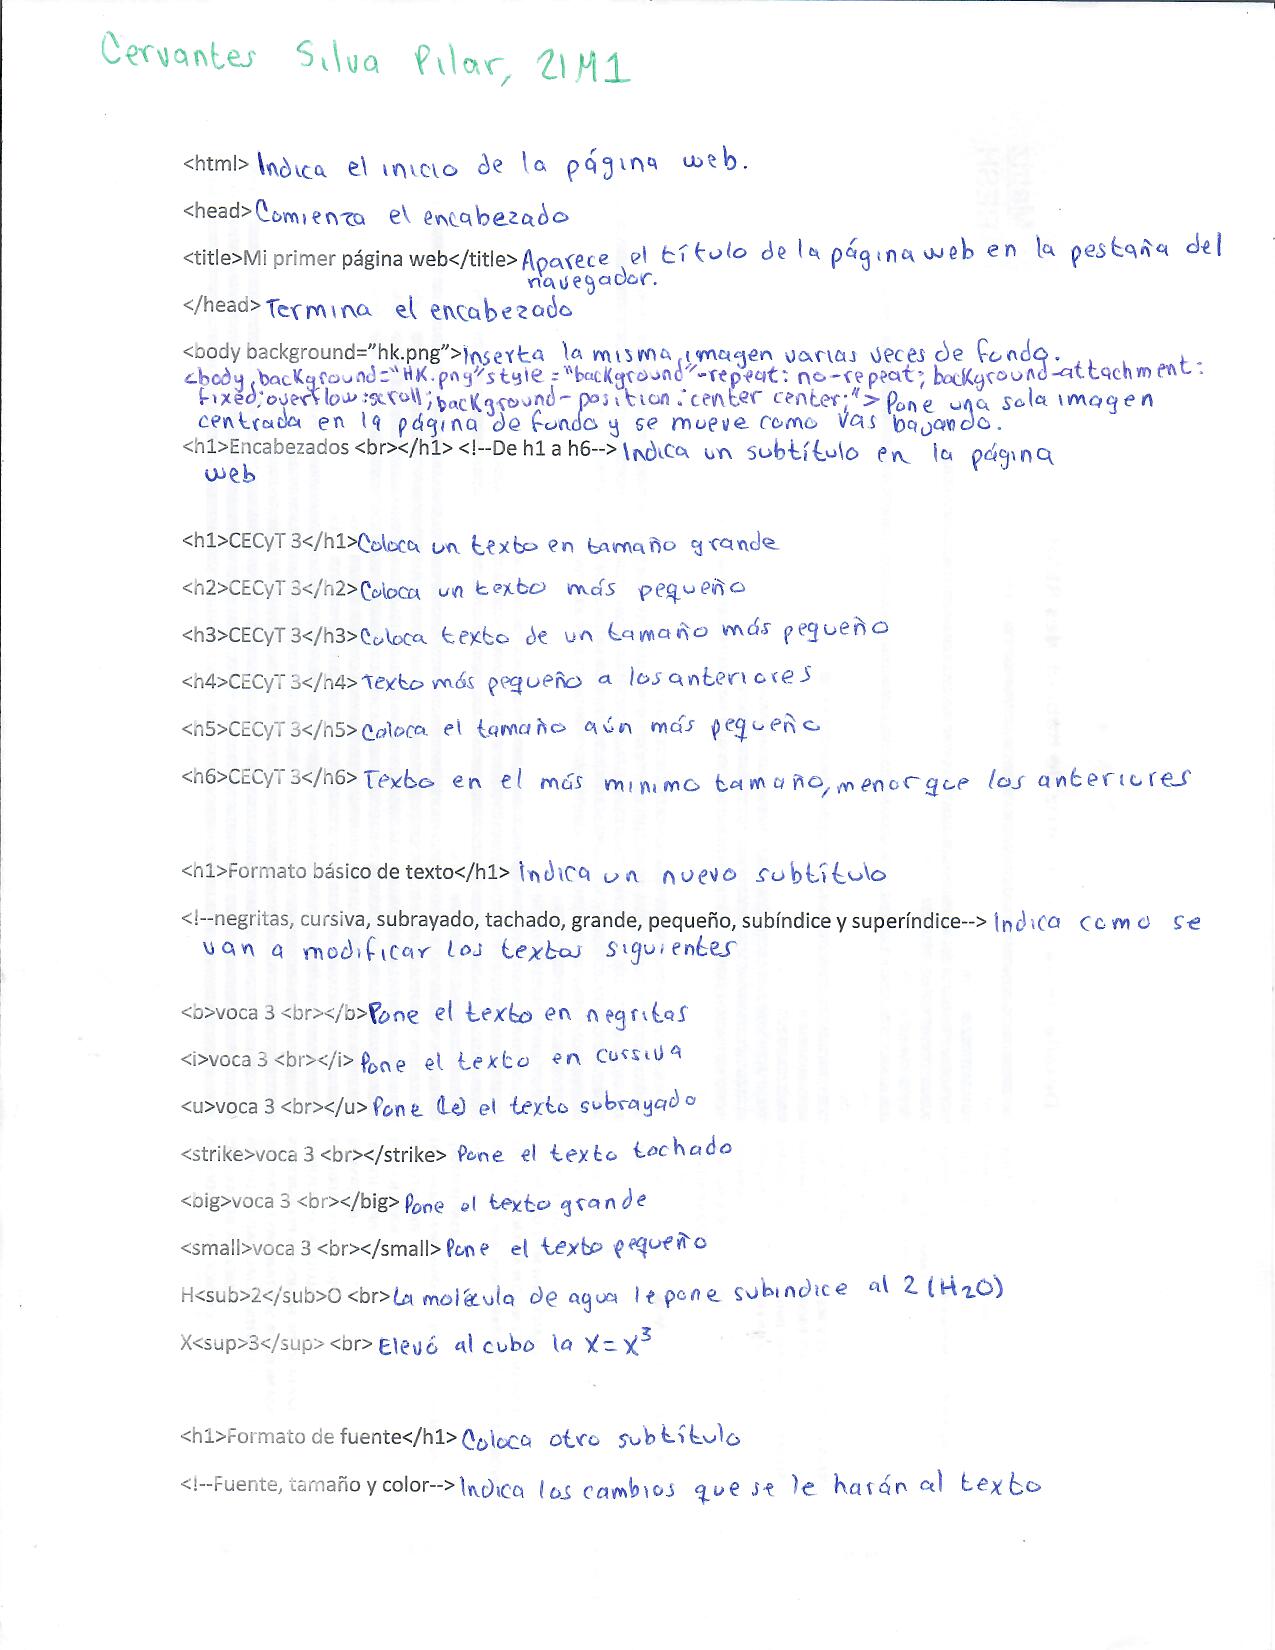 Cervantes Silva Pilar, 21M1
<html> Indica el inicio de la página web.
<head> Comienza el encabezado
<title>Mi primer página web</title> Aparece el título de la página web en la pestaña del
navegador.
</head> Termina el encabezado
<body background="hk.png"> inserta la misma imagen varias veces de fondo.
<body background="HK.png" style="background"-repeat: no-repeat; background-attachment:
fixed; overflow:scroll; background-position: center center;"> Pone una sola imagen
centrada en la página de fondo y se mueve como vas bajando.
<h1>Encabezados <br></h1> <!--De h1 a h6--> Indica un subtítulo en la página
web
<h1>CECyT 3</h1> Coloca un texto en tamaño grande
<h2>CECyT 3</h2> Coloca un texto más pequeño
<h3>CECyT 3</h3> Coloca texto de un tamaño más pequeño
<h4>CECyT 3</h4> Texto más pequeño a los anteriores
<h5>CECyT 3</h5> Coloca el tamaño aún más pequeño
<h6>CECyT 3</h6> Texto en el más minimo tamaño, menor que los anteriores
<h1>Formato básico de texto</h1> Indica un nuevo subtítulo
<!--negritas, cursiva, subrayado, tachado, grande, pequeño, subíndice y superíndice--> Indica como se
van a modificar los textos siguientes
<b>voca 3 <br></b> Pone el texto en negritas
<i>voca 3 <br></i> Pone el texto en cursiva
<u>voca 3 <br></u> Pone (le) el texto subrayado
<strike>voca 3 <br></strike> Pone el texto tachado
<big>voca 3 <br></big> Pone el texto grande
<small>voca 3 <br></small> Pone el texto pequeño
H<sub>2</sub>O <br> La molécula de agua le pone subindice al 2 (H₂O)
X<sup>3</sup> <br> Elevó al cubo la X = X³
<h1>Formato de fuente</h1> Coloca otro subtítulo
<!--Fuente, tamaño y color--> Indica los cambios que se le harán al texto